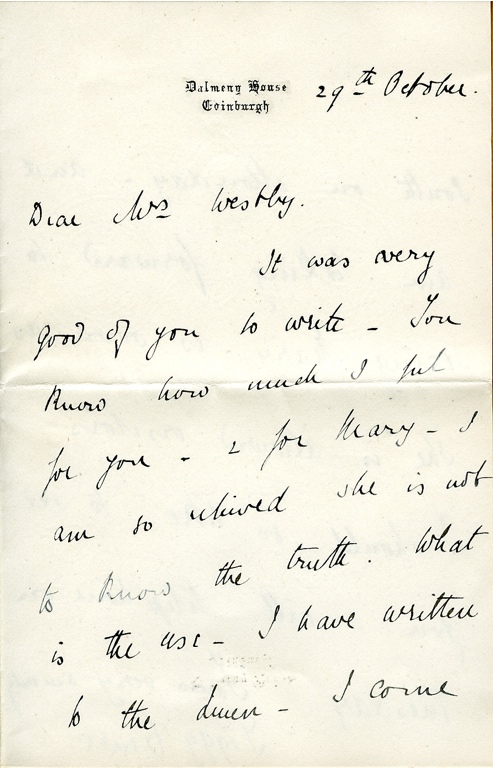 Dalmeny House
Edinburgh
29th October.
Dear Mrs Westby.
It was very
good of you to write - You
know how much I feel
for you - & for Mary - I
am so relieved she is not
to know the truth. What
is the use - I have written
to the - I come